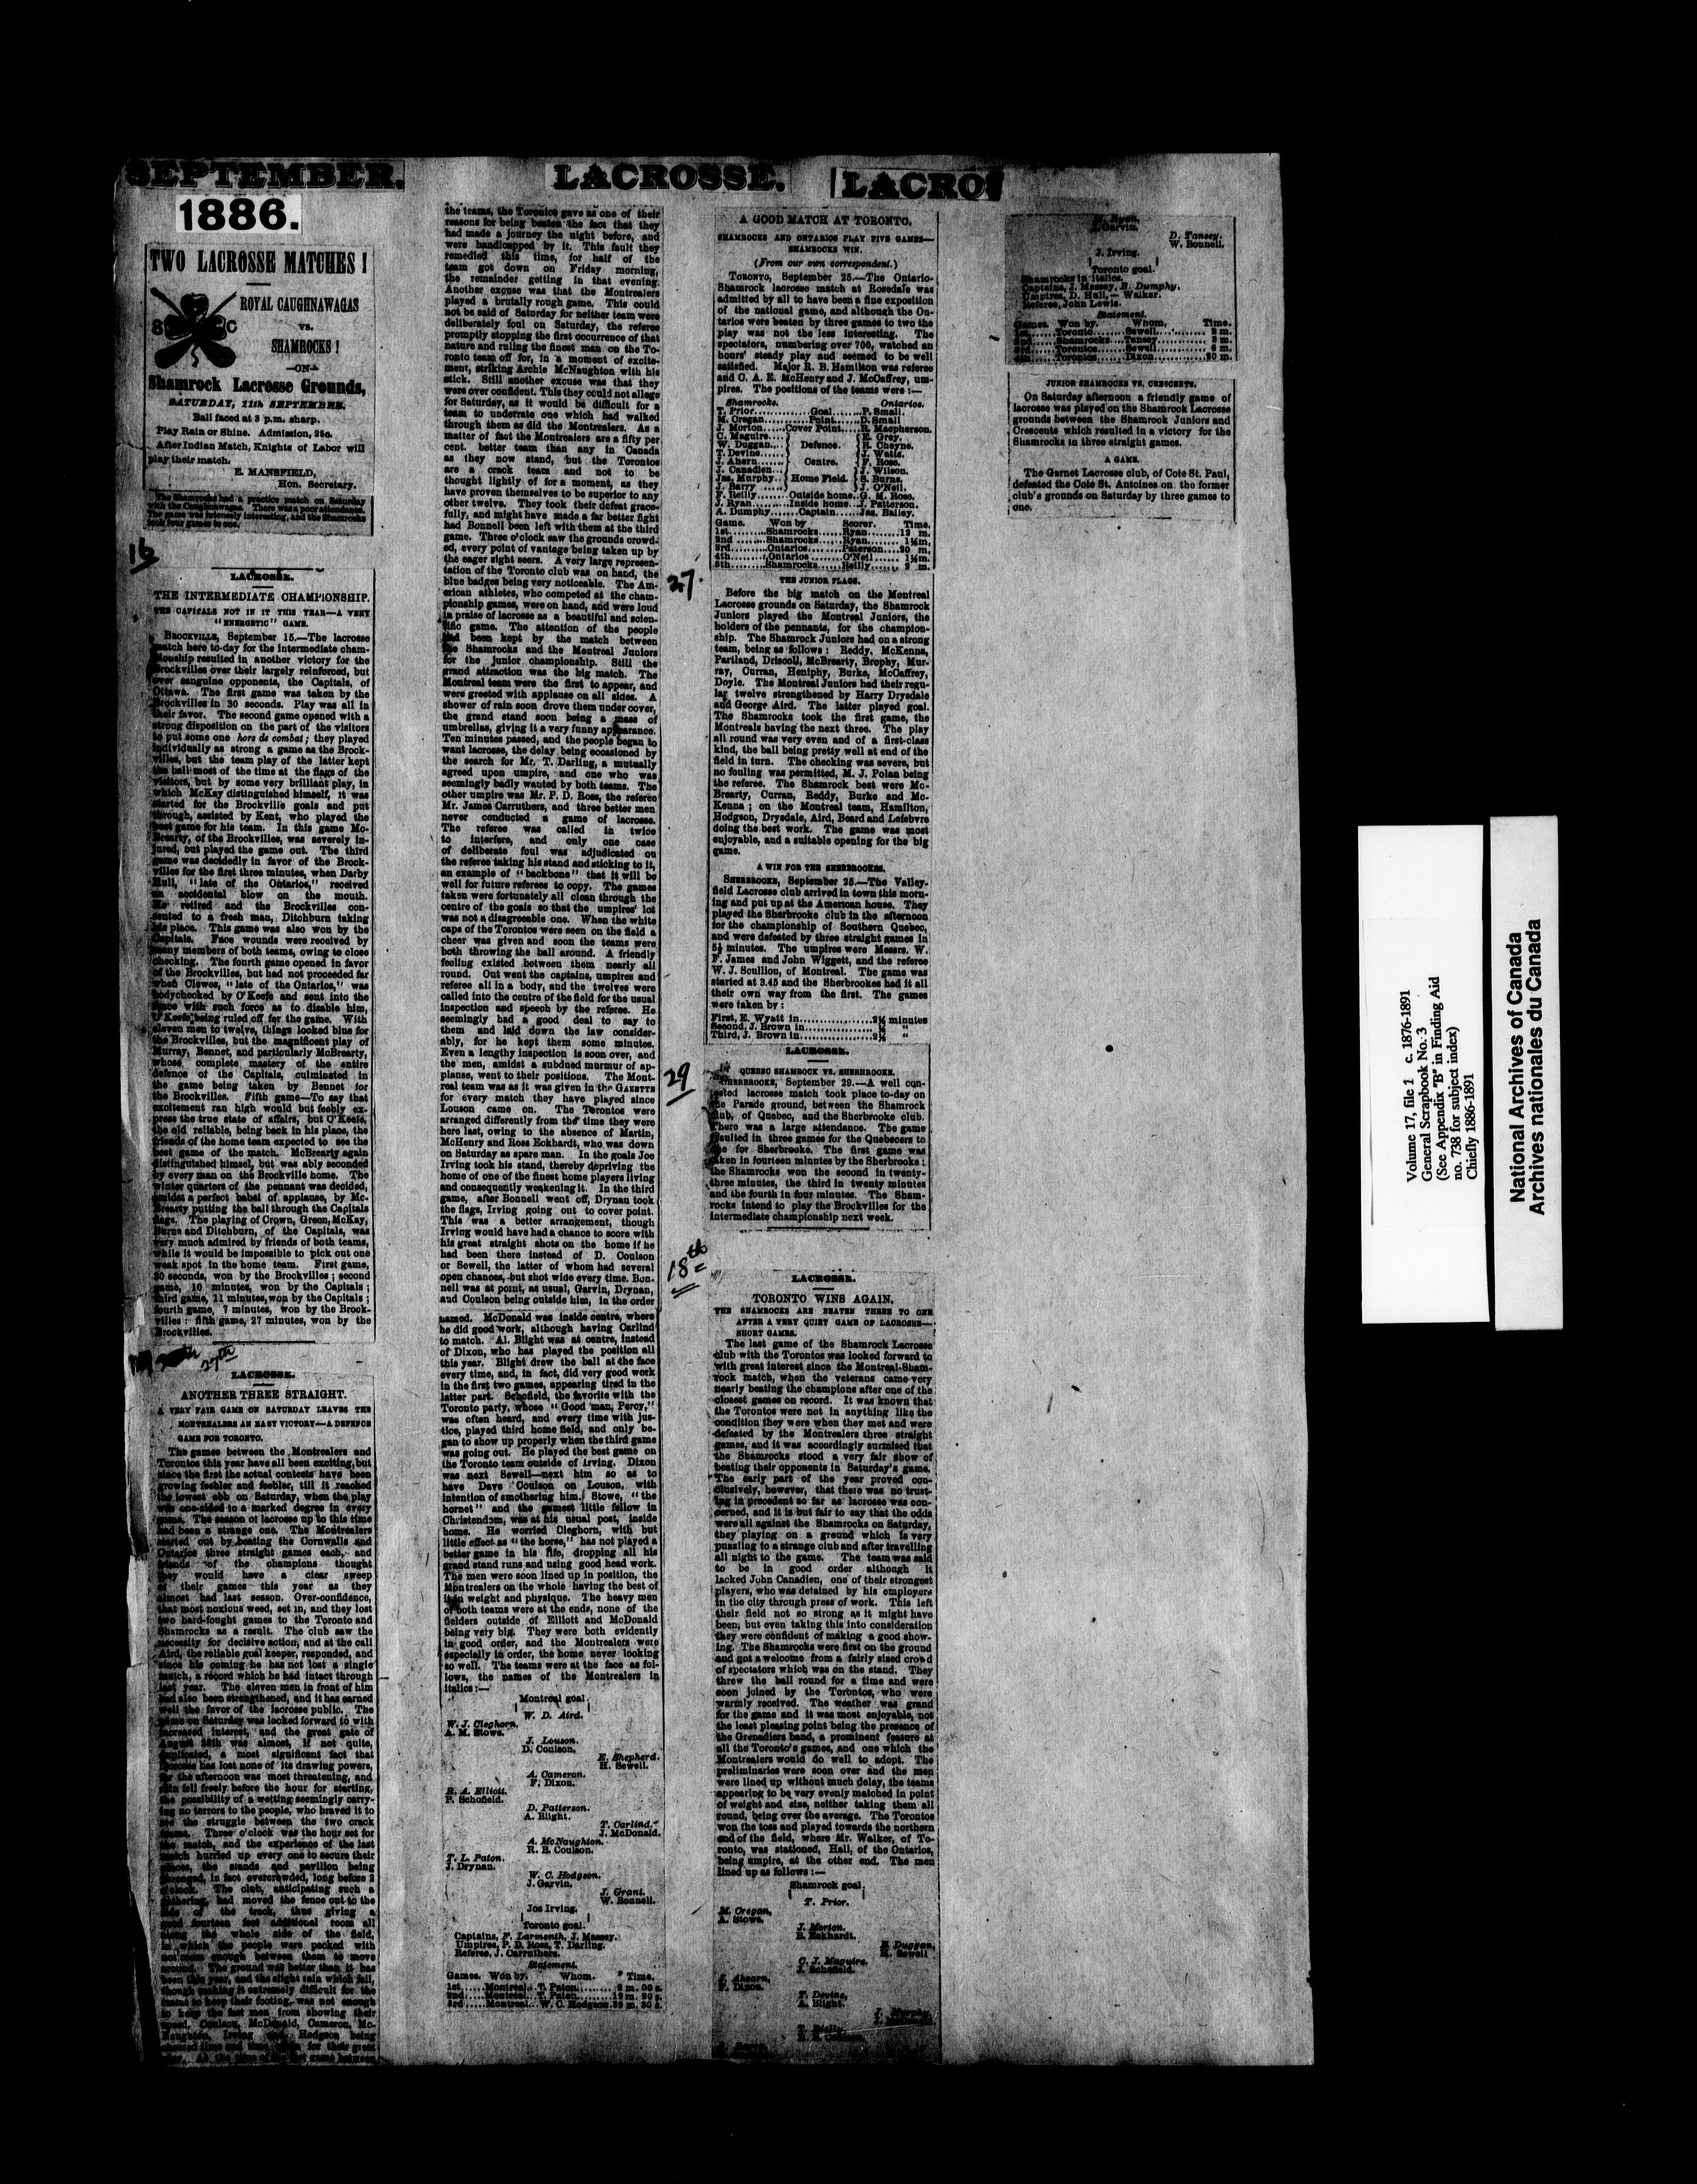 SEPTEMBER.
1886.
TWO LACROSSE MATCHES !
ROYAL CAUGHNAWAGAS
VS.
S C
SHAMROCKS !
—ON—
Shamrock Lacrosse Grounds,
SATURDAY, 11th SEPTEMBER.
Ball faced at 3 p.m. sharp.
Play Rain or Shine. Admission, 25c.
After Indian Match, Knights of Labor will
play their match.
E. MANSFIELD,
Hon. Secretary.
The Shamrocks had a practice match on Saturday
with the Caughnawagas. There was a poor attendance.
The game was intensely interesting, and the Shamrocks
took four games to one.
16
LACROSSE.
THE INTERMEDIATE CHAMPIONSHIP.
THE CAPITALS NOT IN IT THIS YEAR—A VERY
"ENERGETIC" GAME.
BROCKVILLE, September 15.—The lacrosse
match here to-day for the intermediate cham-
pionship resulted in another victory for the
Brockvilles over their largely reinforced, but
over sanguine opponents, the Capitals, of
Ottawa. The first game was taken by the
Brockvilles in 30 seconds. Play was all in
their favor. The second game opened with a
strong disposition on the part of the visitors
to put some one hors de combat; they played
individually as strong a game as the Brock-
villes, but the team play of the latter kept
the ball most of the time at the flags of the
visitors, but by some very brilliant play, in
which McKay distinguished himself, it was
started for the Brockville goals and put
through, assisted by Kent, who played the
best game for his team. In this game Mc-
Brearty, of the Brockvilles, was severely in-
jured, but played the game out. The third
game was decidedly in favor of the Brock-
villes for the first three minutes, when Darby
Hull, "late of the Ontarios," received
an accidental blow on the mouth.
He retired and the Brockvilles con-
sented to a fresh man, Ditchburn taking
his place. This game was also won by the
Capitals. Face wounds were received by
many members of both teams, owing to close
checking. The fourth game opened in favor
of the Brockvilles, but had not proceeded far
when Clewes, "late of the Ontarios," was
bodychecked by O'Keefe and sent into the
fence with such force as to disable him,
O'Keefe being ruled off for the game. With
eleven men to twelve, things looked blue for
the Brockvilles, but the magnificent play of
Murray, Bennet, and particularly McBrearty,
whose complete mastery of the entire
defence of the Capitals, culminated in
the game being taken by Bennet for
the Brockvilles. Fifth game—To say that
excitement ran high would but feebly ex-
press the true state of affairs, but O'Keefe,
the old reliable, being back in his place, the
friends of the home team expected to see the
best game of the match. McBrearty again
distinguished himsel, but was ably seconded
by every man on the Brockville home. The
winter quarters of the pennant was decided,
amidst a perfect babel of applause, by Mc-
Brearty putting the ball through the Capitals
flags. The playing of Crown, Green, McKay,
Burns and Ditchburn, of the Capitals, was
very much admired by friends of both teams,
while it would be impossible to pick out one
weak spot in the home team. First game,
30 seconds, won by the Brockvilles; second
game, 10 minutes, won by the Capitals;
third game, 11 minutes, won by the Capitals;
fourth game, 7 minutes, won by the Brock-
villes: fifth game, 27 minutes, won by the
Brockvilles.
27th
LACROSSE.
ANOTHER THREE STRAIGHT.
A VERY FAIR GAME ON SATURDAY LEAVES THE
MONTREALERS AN EASY VICTORY—A DEFENCE
GAME FOR TORONTO.
The games between the Montrealers and
Torontos this year have all been exciting, but
since the first the actual contests have been
growing feebler and feebler, till it reached
the lowest ebb on Saturday, when the play
was one-sided to a marked degree in every
game. The season of lacrosse up to this time
had been a strange one. The Montrealers
started out by beating the Cornwalls and
Ontarios three straight games each, and
friends of the champions thought
they would have a clear sweep
of their games this year as they
almost had last season. Over-confidence,
that most noxious weed, set in, and they lost
two hard-fought games to the Toronto and
Shamrocks as a result. The club saw the
necessity for decisive action, and at the call
Aird, the reliable goal keeper, responded, and
since his coming he has not lost a single
match, a record which he had intact through
last year. The eleven men in front of him
had also been strengthened, and it has earned
well the favor of the lacrosse public. The
game on Saturday was looked forward to with
increased interest, and the great gate of
August 28th was almost, if not quite,
duplicated, a most significant fact that
lacrosse has lost none of its drawing powers,
for the afternoon was most threatening, and
rain fell freely before the hour for starting,
the possibility of a wetting seemingly carry-
ing no terrors to the people, who braved it to
see the struggle between the two crack
teams. Three o'clock was the hour set for
the match, and the experience of the last
match hurried up every one to secure their
places, the stands and pavilion being
thronged, in fact overcrowded, long before 3
o'clock. The club, anticipating such a
gathering, had moved the fence out to the
side of the track, thus giving a
good fourteen feet additional room all
along the whole side of the field,
in which the people were packed with
not room enough between them to move
around. The ground was better than it has
been this year, and the slight rain which fell,
though making it extremely difficult for the
to keep their footing, was not enough
to keep the fast men from showing their
speed, Coulson, McDonald, Cameron, Mc-
Naughton, Irving and Hodgson being
LACROSSE.
the teams, the Torontos gave as one of their
reasons for being beaten the fact that they
had made a journey the night before, and
were handicapped by it. This fault they
remedied this time, for half of the
team got down on Friday morning,
the remainder getting in that evening.
Another excuse was that the Montrealers
played a brutally rough game. This could
not be said of Saturday for neither team were
deliberately foul on Saturday, the referee
promptly stopping the first occurrence of that
nature and ruling the finest man on the To-
ronto team off for, in a moment of excite-
ment, striking Archie McNaughton with his
stick. Still another excuse was that they
were over confident. This they could not allege
for Saturday, as it would be difficult for a
team to underrate one which had walked
through them as did the Montrealers. As a
matter of fact the Montrealers are a fifty per
cent. better team than any in Canada
as they now stand, but the Torontos
are a crack team and not to be
thought lightly of for a moment, as they
have proven themselves to be superior to any
other twelve. They took their defeat grace-
fully, and might have made a far better fight
had Bonnell been left with them at the third
game. Three o'clock saw the grounds crowd-
ed, every point of vantage being taken up by
the eager sight seers. A very large represen-
tation of the Toronto club was on hand, the
blue badges being very noticeable. The Am-
erican athletes, who competed at the cham-
pionship games, were on hand, and were loud
in praise of lacrosse as a beautiful and scien-
tific game. The attention of the people
had been kept by the match between
the Shamrocks and the Montreal Juniors
for the junior championship. Still the
grand attraction was the big match. The
Montreal team were the first to appear, and
were greeted with applause on all sides. A
shower of rain soon drove them under cover,
the grand stand soon being a mass of
umbrellas, giving it a very funny appearance.
Ten minutes passed, and the people began to
want lacrosse, the delay being occasioned by
the search for Mr. T. Darling, a mutually
agreed upon umpire, and one who was
seemingly badly wanted by both teams. The
other umpire was Mr. P. D. Ross, the referee
Mr. James Carruthers, and three better men
never conducted a game of lacrosse.
The referee was called in twice
to interfere, and only one case
of deliberate foul was adjudicated on
the referee taking his stand and sticking to it,
an example of "backbone" that it will be
well for future referees to copy. The games
taken were fortunately all clean through the
centre of the goals so that the umpires' lot
was not a disagreeable one. When the white
caps of the Torontos were seen on the field a
cheer was given and soon the teams were
both throwing the ball around. A friendly
feeling existed between them nearly all
round. Out went the captains, umpires and
referee all in a body, and the twelves were
called into the centre of the field for the usual
inspection and speech by the referee. He
seemingly had a good deal to say to
them and laid down the law consider-
ably, for he kept them some minutes.
Even a lengthy inspection is soon over, and
the men, amidst a subdued murmur of ap-
plause, went to their positions. The Mont-
real team was as it was given in the GAZETTE
for every match they have played since
Louson came on. The Torontos were
arranged differently from the time they were
here last, owing to the absence of Martin,
McHenry and Ross Eckhardt, who was down
on Saturday as spare man. In the goals Joe
Irving took his stand, thereby depriving the
home of one of the finest home players living
and consequently weakening it. In the third
game, after Bonnell went off, Drynan took
the flags, Irving going out to cover point.
This was a better arrangement, though
Irving would have had a chance to score with
his great straight shots on the home if he
had been there instead of D. Coulson
or Sewell, the latter of whom had several
open chances, but shot wide every time. Bon-
nell was at point, as usual, Garvin, Drynan,
and Coulson being outside him, in the order
named. McDonald was inside centre, where
he did good work, although having Carlind
to match. Al. Blight was at centre, instead
of Dixon, who has played the position all
this year. Blight drew the ball at the face
every time, and, in fact, did very good work
in the first two games, appearing tired in the
latter part. Schofield, the favorite with the
Toronto party, whose "Good man, Percy,"
was often heard, and every time with jus-
tice, played third home field, and only be-
gan to show up properly when the third game
was going out. He played the best game on
the Toronto team outside of Irving. Dixon
was next Sewell—next him so as to
have Dave Coulson on Louson, with
intention of smothering him. Stowe, "the
hornet" and the gamest little fellow in
Christendom, was at his usual post, inside
home. He worried Cleghorn, with but
little effect as "the horse," has not played a
better game in his life, dropping all his
grand stand runs and using good head work.
The men were soon lined up in position, the
Montrealers on the whole having the best of
it in weight and physique. The heavy men
of both teams were at the ends, none of the
fielders outside of Elliott and McDonald
being very big. They were both evidently
in good order, and the Montrealers were
especially in order, the home never looking
so well. The teams were at the face as fol-
lows, the names of the Montrealers in
italics:—
Montreal goal.
W. D. Aird.
W. J. Cleghorn.
A. M. Stowe.
J. Louson.
D. Coulson.
E. Shepherd.
H. Sewell.
A. Cameron.
F. Dixon.
R. A. Elliott.
P. Schofield.
D. Patterson.
A. Blight.
T. Carlind.
J. McDonald.
A. McNaughton.
R. B. Coulson.
T. L. Paton.
J. Drynan.
W. C. Hodgson.
J. Garvin.
J. Grant.
W. Bonnell.
Joe Irving.
Toronto goal.
Captains, F. Larmonth, J. Massey.
Umpires, P. D. Ross, T. Darling.
Referee, J. Carruthers.
Statement.
Games. Won by. Whom. Time.
1st......Montreal..T. Paton........ m. 00 s.
2nd.....Montreal..T. Paton........ m. s.
3rd.....Montreal...W. C. Hodgson. m. 30 s.
LACRO
27.
A GOOD MATCH AT TORONTO.
SHAMROCKS AND ONTARIOS PLAY FIVE GAMES—
SHAMROCKS WIN.
(From our own correspondent.)
TORONTO, September 25.—The Ontario-
Shamrock lacrosse match at Rosedale was
admitted by all to have been a fine exposition
of the national game, and although the On-
tarios were beaten by three games to two the
play was not the less interesting. The
spectators, numbering over 700, watched an
hours' steady play and seemed to be well
satisfied. Major R. B. Hamilton was referee
and C. A. E. McHenry and J. McCaffrey, um-
pires. The positions of the teams were :—
Shamrocks. Ontarios.
T. Prior............Goal.......P. Small.
M. Cregan..........Point......D. Small.
J. Morton.....Cover Point....R. Macpherson.
C. Maguire.... E. Grey.
W. Duggan... Defence. R. Cheyne.
T. Devine...... J. Watts.
J. Ahern....... Centre. F. Rose.
J. Canadien... J. Wilson.
Jas. Murphy.. Home Field. S. Burns.
J. Barry ..... J. O'Neil.
F. Reilly.......Outside home..G. M. Rose.
J. Ryan.........Inside home...J. Patterson.
A. Dumphy......Captain......Jas. Bailey.
Game. Won by Scorer. Time.
1st.........Shamrocks.....Ryan.......12 m.
2nd.......Shamrocks.....Ryan....... 1½m.
3rd.........Ontarios........Paterson....20 m.
4th.........Ontarios........O'Neil...... 1½m.
5th........Shamrocks.....Reilly...... 2 m.
THE JUNIOR FLAGS.
Before the big match on the Montreal
Lacrosse grounds on Saturday, the Shamrock
Juniors played the Montreal Juniors, the
holders of the pennants, for the champion-
ship. The Shamrock Juniors had on a strong
team, being as follows: Reddy, McKenna,
Partland, Driscoll, McBrearty, Brophy, Mur-
ray, Curran, Heniphy, Burke, McCaffrey,
Doyle. The Montreal Juniors had their regu-
lar twelve strengthened by Harry Drysdale
and George Aird. The latter played goal.
The Shamrocks took the first game, the
Montreals having the next three. The play
all round was very even and of a first-class
kind, the ball being pretty well at end of the
field in turn. The checking was severe, but
no fouling was permitted, M. J. Polan being
the referee. The Shamrock best were Mc-
Brearty, Curran, Reddy, Burke and Mc-
Kenna; on the Montreal team, Hamilton,
Hodgson, Drysdale, Aird, Beard and Lefebvre
doing the best work. The game was most
enjoyable, and a suitable opening for the big
game.
A WIN FOR THE SHERBROOKES.
SHERBROOKE, September 25.—The Valley-
field Lacrosse club arrived in town this morn-
ing and put up at the American house. They
played the Sherbrooke club in the afternoon
for the championship of Southern Quebec,
and were defeated by three straight games in
5½ minutes. The umpires were Messrs. W.
F. James and John Wiggett, and the referee
W. J. Scullion, of Montreal. The game was
started at 3.45 and the Sherbrookes had it all
their own way from the first. The games
were taken by:
First, E. Wyatt in..................2½ minutes
Second, J. Brown in................. ½ "
Third, J. Brown in..................2½ "
29
LACROSSE.
QUEBEC SHAMROCK VS. SHERBROOKE.
SHERBROOKE, September 29.—A well con-
tested lacrosse match took place to-day on
the Parade ground, between the Shamrock
club, of Quebec, and the Sherbrooke club.
There was a large attendance. The game
resulted in three games for the Quebecers to
one for Sherbrooke. The first game was
taken in fourteen minutes by the Sherbrooke;
the Shamrocks won the second in twenty-
three minutes, the third in twenty minutes
and the fourth in four minutes. The Sham-
rocks intend to play the Brockvilles for the
intermediate championship next week.
18th
LACROSSE.
TORONTO WINS AGAIN.
THE SHAMROCKS ARE BEATEN THREE TO ONE
AFTER A VERY QUIET GAME OF LACROSSE—
SHORT GAMES.
The last game of the Shamrock Lacrosse
club with the Torontos was looked forward to
with great interest since the Montreal-Sham-
rock match, when the veterans came very
nearly beating the champions after one of the
closest games on record. It was known that
the Torontos were not in anything like the
condition they were when they met and were
defeated by the Montrealers three straight
games, and it was accordingly surmised that
the Shamrocks stood a very fair show of
beating their opponents in Saturday's game.
The early part of the year proved con-
clusively, however, that there was no trust-
ing in precedent so far as lacrosse was con-
cerned, and it is but fair to say that the odds
were all against the Shamrocks on Saturday,
they playing on a ground which is very
puzzling to a strange club and after travelling
all night to the game. The team was said
to be in good order although it
lacked John Canadien, one of their strongest
players, who was detained by his employers
in the city through press of work. This left
their field not so strong as it might have
been, but even taking this into consideration
they were confident of making a good show-
ing. The Shamrocks were first on the ground
and got a welcome from a fairly sized crowd
of spectators which was on the stand. They
threw the ball round for a time and were
soon joined by the Torontos, who were
warmly received. The weather was grand
for the game and it was most enjoyable, not
the least pleasing point being the presence of
the Grenadiers band, a prominent feature at
all the Toronto's games, and one which the
Montrealers would do well to adopt. The
preliminaries were soon over and the men
were lined up without much delay, the teams
appearing to be very evenly matched in point
of weight and size, neither taking them all
round, being over the average. The Torontos
won the toss and played towards the northern
end of the field, where Mr. Walker, of To-
ronto, was stationed, Hall, of the Ontarios,
being umpire, at the other end. The men
lined up as follows :—
Shamrock goal.
T. Prior.
M. Cregan.
A. Stowe.
J. Morton.
R. Eckhardt.
Duggan.
Sewell
C. J. Maguire.
J. Schofield.
J. Ahearn.
F. Dixon.
T. Devine.
A. Blight.
J. Murphy.
Reilly.
Ryan.
Garvin.
D. Tansey.
W. Bonnell.
J. Irving.
Toronto goal.
Shamrocks in italics.
Captains, J. Massey, R. Dumphy.
Umpires, D. Hall, — Walker.
Referee, John Lewis.
Statement.
Games. Won by. Whom. Time.
1st......Toronto.......Sewell............ 2 m.
2nd.....Shamrocks...Tansey......... 3 m.
3rd......Torontos......Sewell............ 6 m.
4th......Torontos......Dixon...........20 m.
JUNIOR SHAMROCKS VS. CRESCENTS.
On Saturday afternoon a friendly game of
lacrosse was played on the Shamrock Lacrosse
grounds between the Shamrock Juniors and
Crescents which resulted in a victory for the
Shamrocks in three straight games.
A GAME.
The Garnet Lacrosse club, of Cote St. Paul,
defeated the Cote St. Antoines on the former
club's grounds on Saturday by three games to
one.
Volume 17, file 1 c. 1876-1891
General Scrapbook No. 3
(See Appendix "B" in Finding Aid
no. 738 for subject index)
Chiefly 1886-1891
National Archives of Canada
Archives nationales du Canada